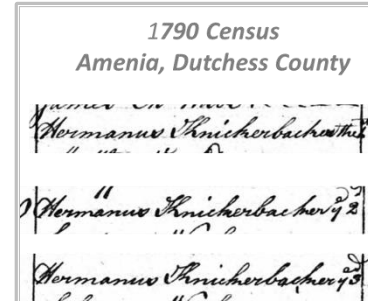 1790 Census
Amenia, Dutchess County
Hermanus Knickerbacker the
Hermanus Knickerbacker yᵉ 2
Hermanus Knickerbacker yᵉ 3